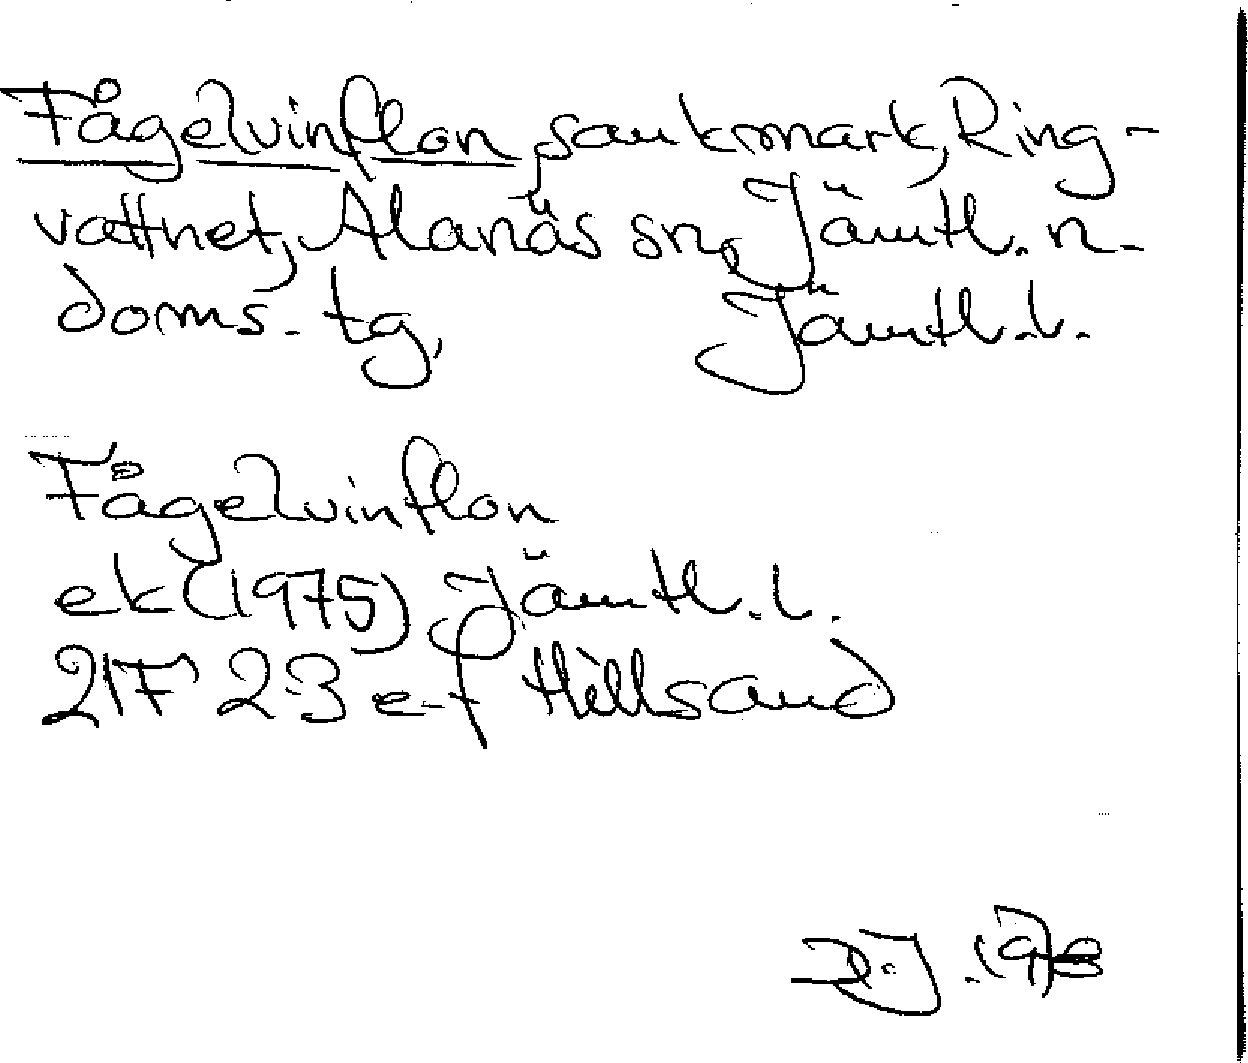 Fågelvinflon, sankmark, Ring-
vattnet, Alanäs sn, Jämtl. n.
doms. tg, Jämtl. l.
Fågelvinflon
ek (1975) Jämtl. l.
21F 23 e-f Hillsand
1978